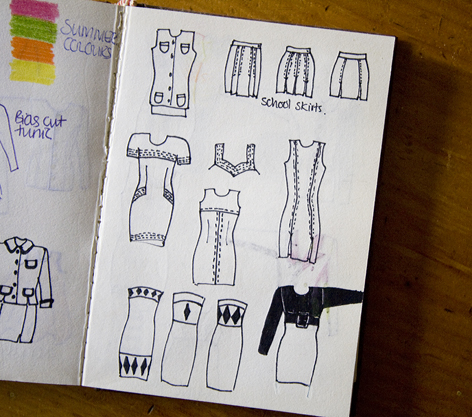 SUMMER
COLOURS
Bias cut
tunic
school skirts.